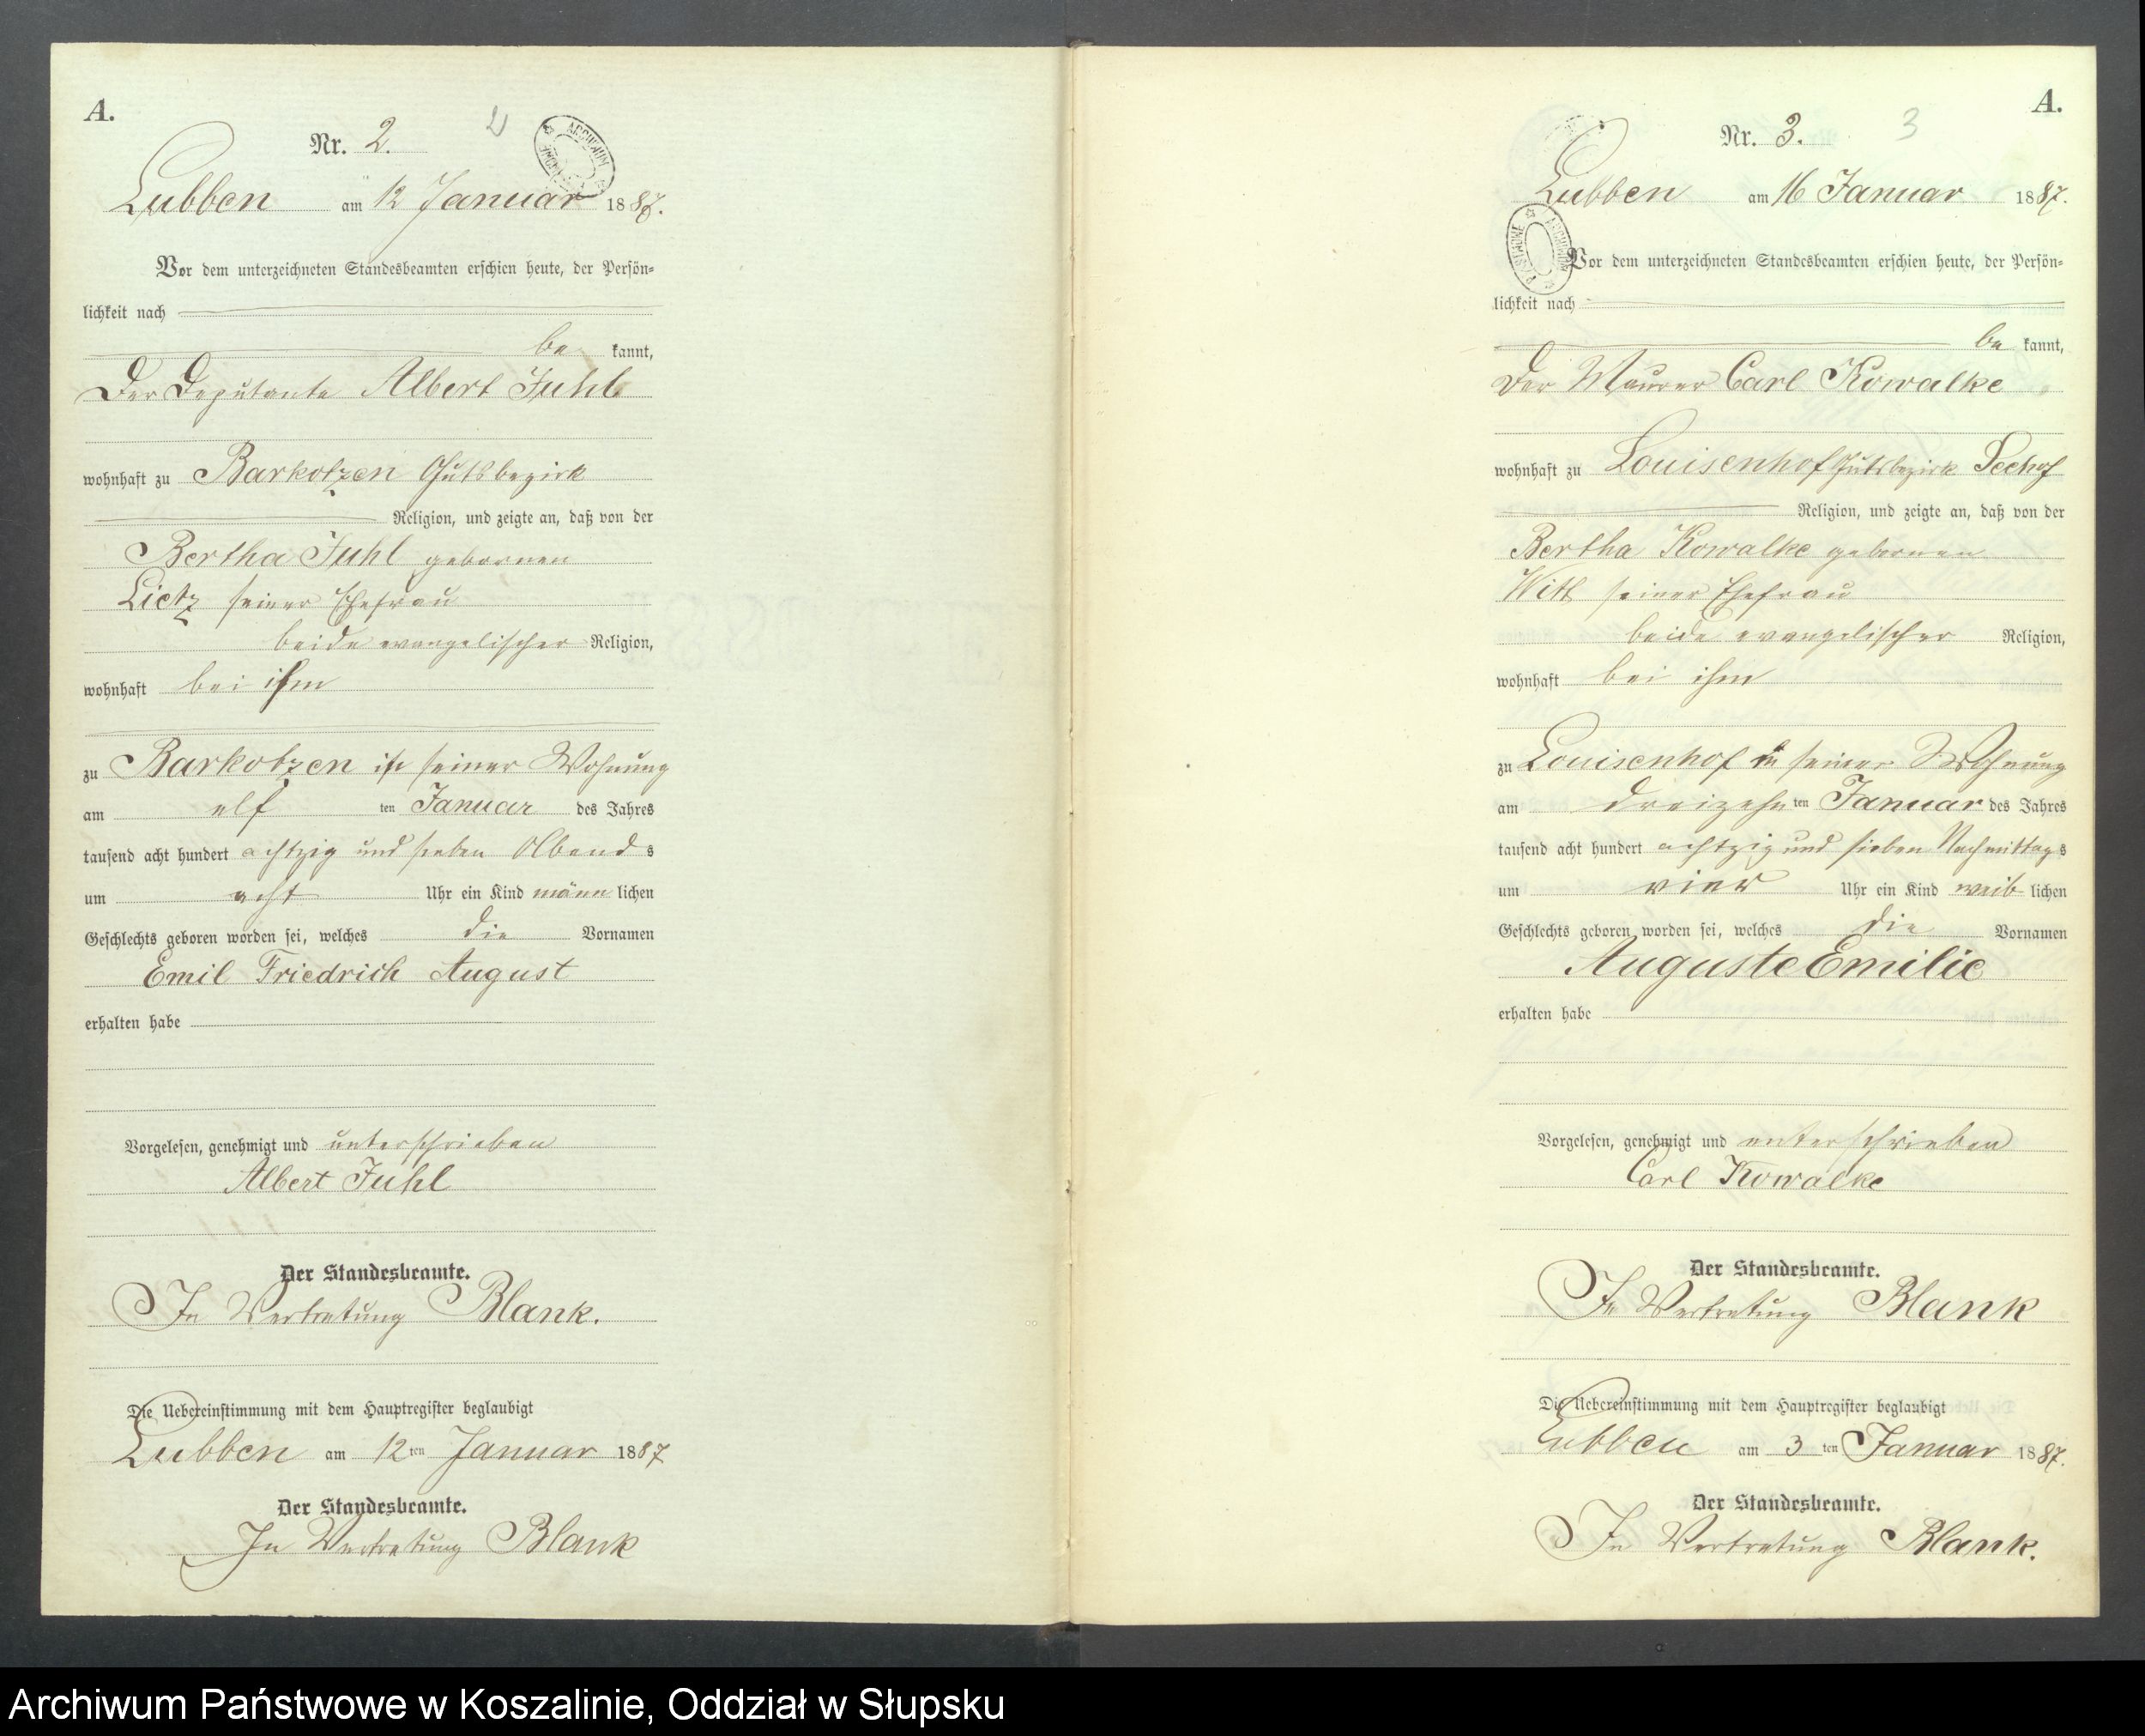 A.
Nr. 2.
2
Lubben am 12 Januar 1887.
Vor dem unterzeichneten Standesbeamten erschien heute, der Persön=
lichkeit nach
be kannt,
Der Deputante Albert Juhl
wohnhaft zu Barkotzen Gutsbezirk
Religion, und zeigte an, daß von der
Bertha Juhl gebornen
Lietz seiner Ehefrau
beide evangelischer Religion,
wohnhaft bei ihm
zu Barkotzen in seiner Wohnung
am elf ten Januar des Jahres
tausend acht hundert achtzig und sieben Abend s
um acht Uhr ein Kind männ lichen
Geschlechts geboren worden sei, welches die Vornamen
Emil Friedrich August
erhalten habe
Vorgelesen, genehmigt und unterschrieben
Albert Juhl
Der Standesbeamte.
In Vertretung Blank.
Die Uebereinstimmung mit dem Hauptregister beglaubigt
Lubben am 12 ten Januar 1887
Der Standesbeamte.
In Vertretung Blank
A.
Nr. 3.
3
Lubben am 16 Januar 1887.
Vor dem unterzeichneten Standesbeamten erschien heute, der Persön=
lichkeit nach
be kannt,
Der Maurer Carl Kowalke
wohnhaft zu Louisenhof Gutsbezirk Seehof
Religion, und zeigte an, daß von der
Bertha Kowalke gebornen
Witt seiner Ehefrau
beide evangelischer Religion,
wohnhaft bei ihm
zu Louisenhof in seiner Wohnung
am dreizehn ten Januar des Jahres
tausend acht hundert achtzig und sieben Nachmittag s
um vier Uhr ein Kind weib lichen
Geschlechts geboren worden sei, welches die Vornamen
Auguste Emilie
erhalten habe
Vorgelesen, genehmigt und unterschrieben
Carl Kowalke
Der Standesbeamte.
In Vertretung Blank
Die Uebereinstimmung mit dem Hauptregister beglaubigt
Lubben am 3 ten Januar 1887.
Der Standesbeamte.
In Vertretung Blank.
Archiwum Państwowe w Koszalinie, Oddział w Słupsku